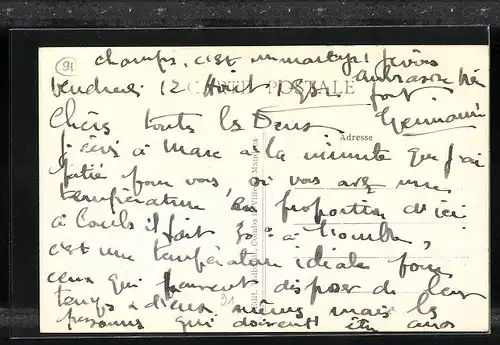 91
champs, c'est un martyr! je vous
vendredi 12 Août 1932 embrasse très
CARTE POSTALE
fort
Chers toutes les Deux Germaine
Adresse
j'écris à Marc à la minute que j'ai
pitié pour vous, si vous avez une
température, en proportion d'ici
à Conils il fait 30° à l'ombre,
c'est une température idéale pour
ceux qui peuvent disposer de leur
temps & d'eux mêmes mais les
91
personnes qui doivent être aux